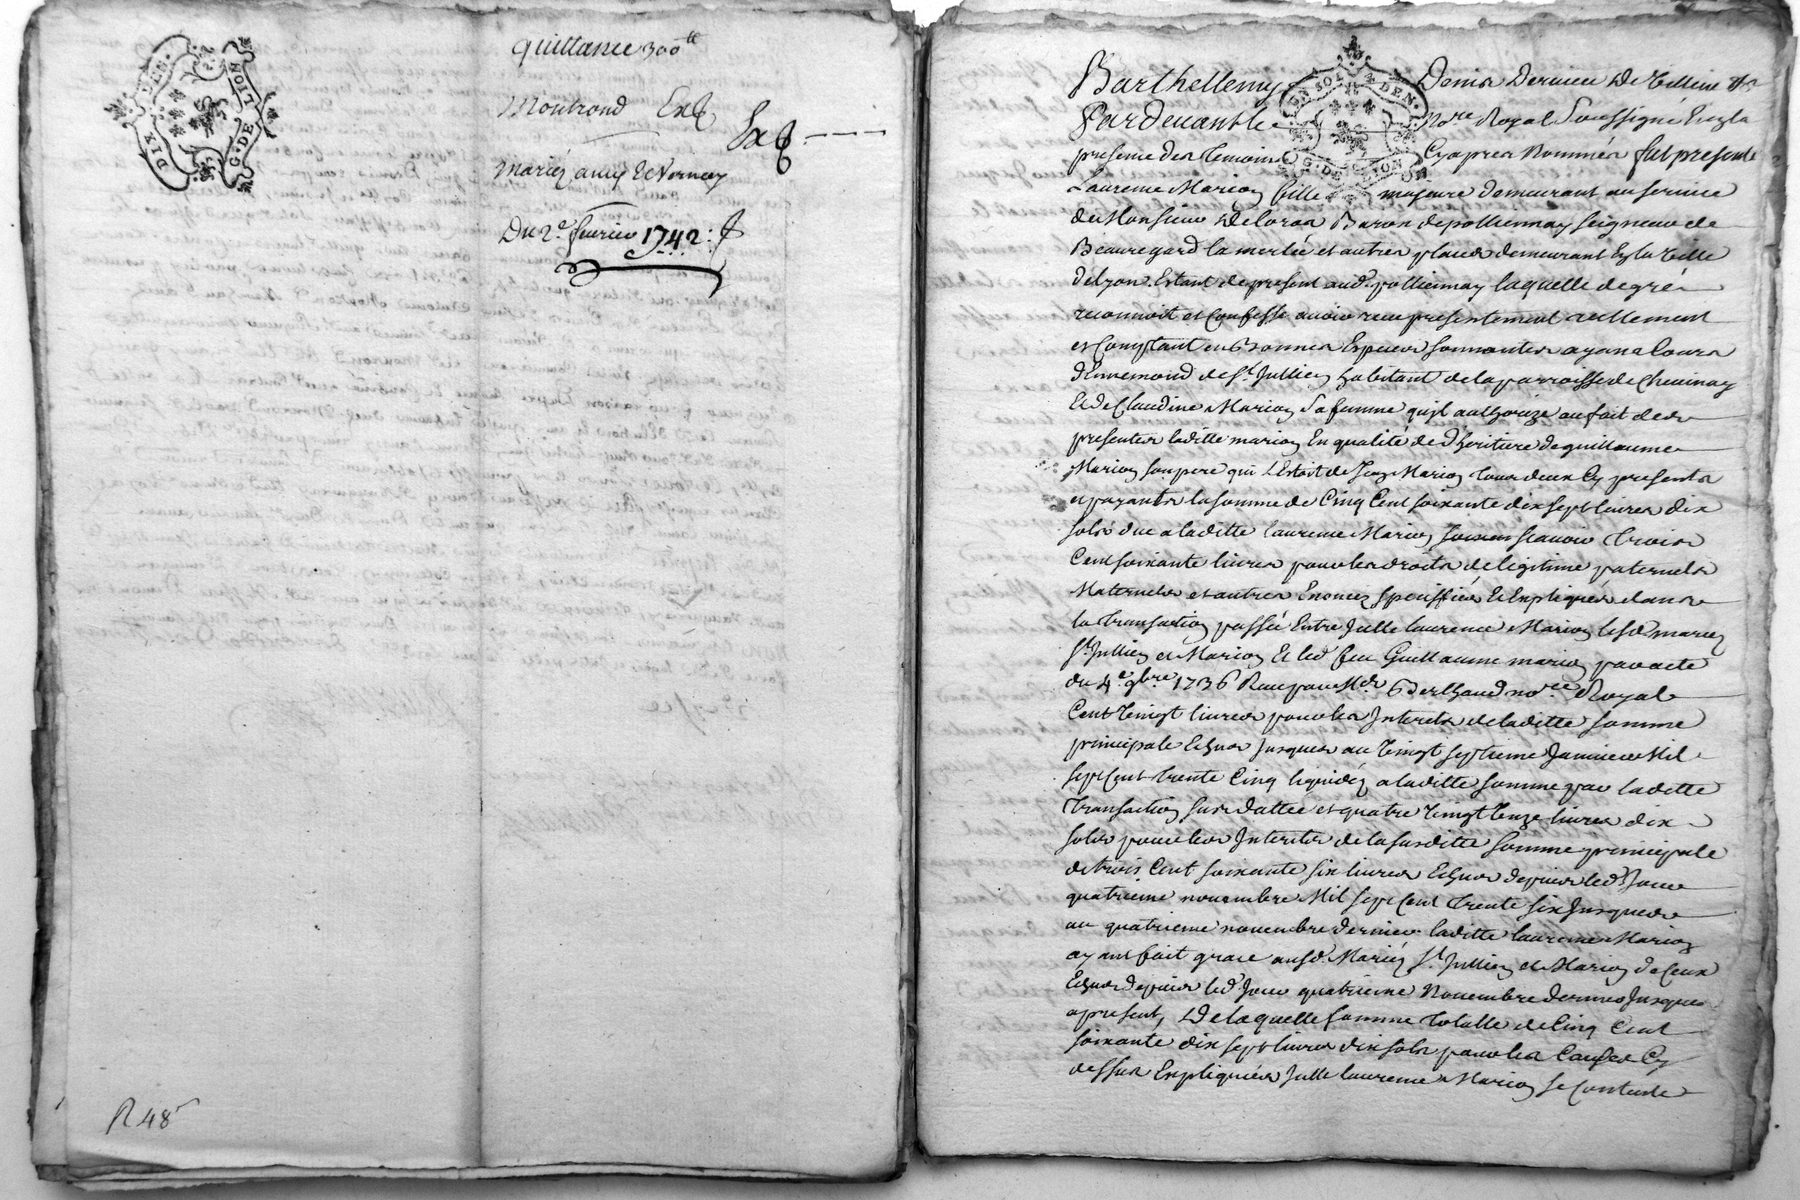 DIX DEN.
G. DE LION
quittance 300ᵗᵗ
Montrond Exp
Exp
mariez amy & Vernay
Du 2ᵉ fevrier 1742:
R 48ˢ
Barthellemy Denis Dervieu de Villieu
UN SOL 4 DEN.
G. DE LION
Pardevant le Noʳᵉ Royal soussigné En la
presence des temoins Cyapres Nommés fut presente
Laurence Marion fille majeure demeurant au service
de Monsieur Baron de pollionnay seigneur de
Beauregard la merlée et autres places demeurant En la Ville
de Lyon Estant de present aud. pollionnay laquelle de gré
reconnoit et Confesse avoir receu presentement reellement
et Comptant en Bonnes Especes sonnantes ayant Cours
d'Ennemond de Sᵗ Jullien habitant de la parroisse de Chevinay
Et de Claudine Marion sa femme qu'il authorize au fait des
presentes laditte marion En qualité de d'heritiere de guillaume
Marion son pere qui L'Estoit de Jean Marion tous deux Cy presents
et payants la somme de Cinq Cent soixante dix sept livres dix
sols due a laditte laurence Marion scavoir trois
Cent soixante livres pour les droits de legitime paternels
Maternels et autres Enoncez speciffiés & Expliqués dans
la transaction passée Entre Jelle laurence Marion lesd mariez
Sᵗ Jullien et Marion Et led feu Guillaume marion par acte
du 4ᵉ 9bre 1736 Receu par Mᵉ noʳᵉ Royal
Cent Vingt livres pour les Interets de laditte somme
principale Echus Jusques au Vingt septieme Janvier Mil
sept Cent trente Cinq liquidéz a laditte somme par laditte
transaction susdattée et quatre Vingt Onze livres dix
sols pour les Interets de la susditte somme principale
de trois Cent soixante six livres Echus depuis led. Jour
quatrieme novembre Mil sept Cent trente six Jusques
au quatrieme novembre dernier laditte laurence Marion
ayant fait grace ausd. Mariéz Sᵗ Jullien et Marion de Ceux
Echus depuis led Jour quatrieme Novembre dernier Jusques
a present, De laquelle somme totalle de Cinq Cent
soixante dix sept livres dix sols pour les Causes Cy
dessus Expliquées Jelle laurence Marion se Contente